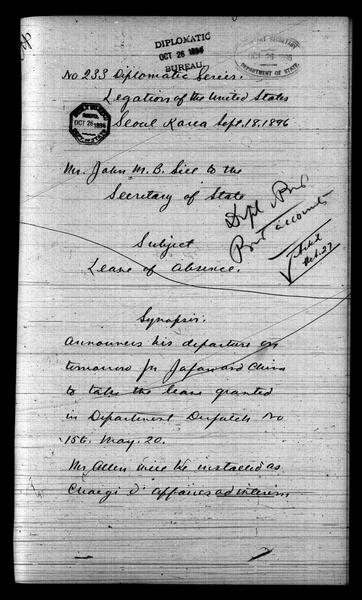 DIPLOMATIC
OCT 26 1896
BUREAU.
DEPARTMENT OF STATE
No 233 Diplomatic Series.
Legation of the United States
OCT 26 1896
Seoul Korea Sept. 18, 1896
Mr. John M. B. Sill to the
Secretary of State
Dipl
accounts
Oct. 27
Subject
Leave of Absence.
Synopsis.
Announces his departure on
tomorrow for Japan and China
to take the leave granted
in Department Despatch No
156. May. 20.
Mr Allen will be installed as
Chargé d' Affaires ad interim